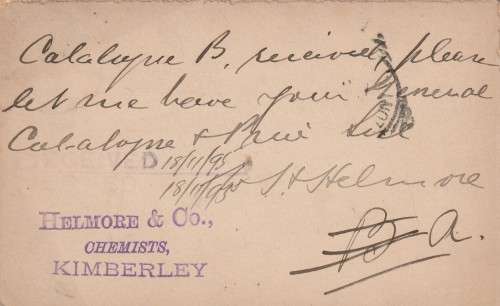 Catalogue B. received, please
let me have your General
Catalogue & Price List
D 18/11/95
18/11/95 S. Helmore
HELMORE & CO.,
CHEMISTS,
KIMBERLEY
B A.